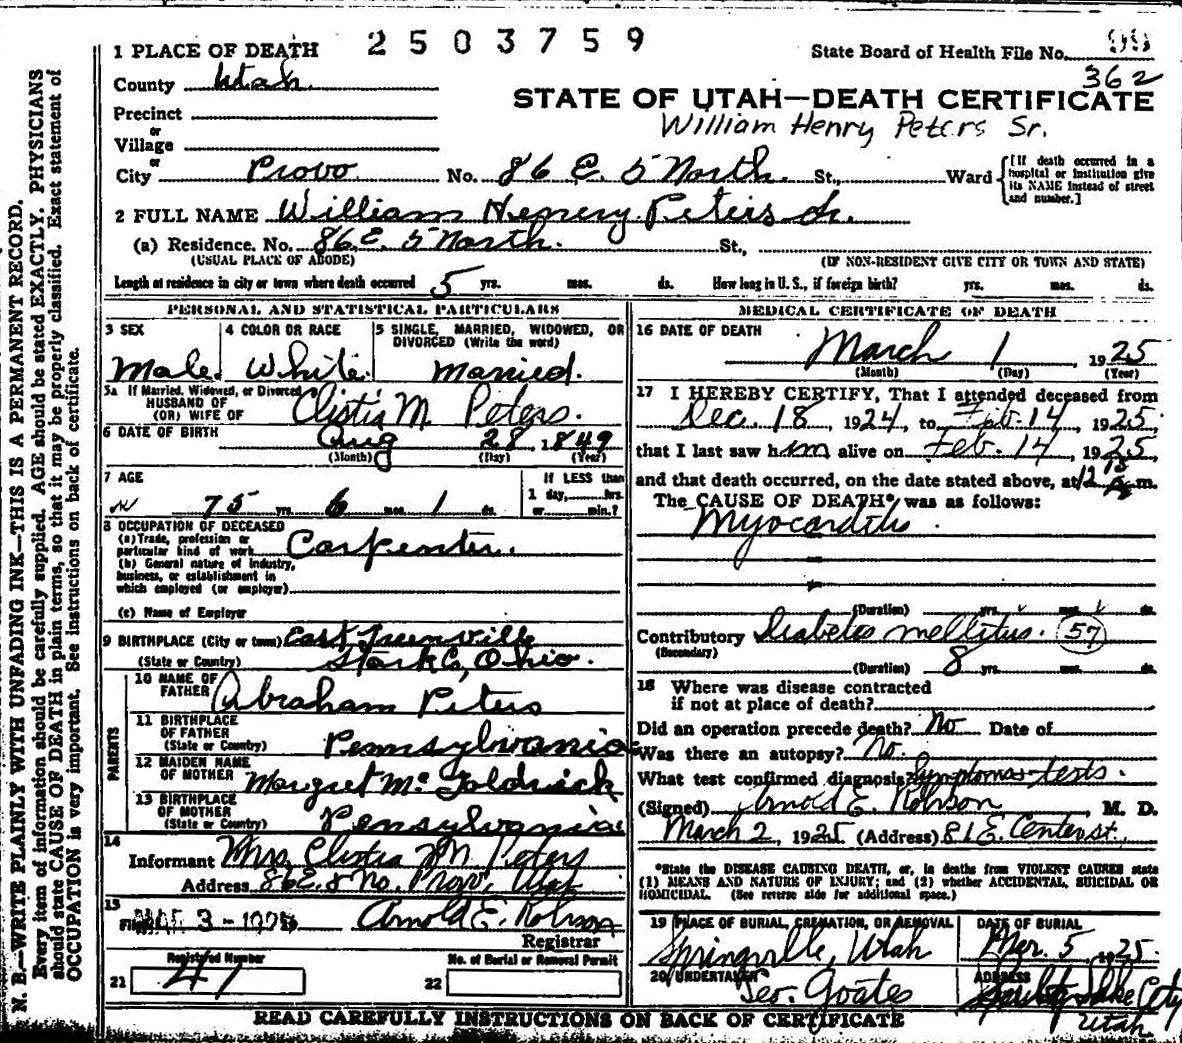 1 PLACE OF DEATH 2503759 State Board of Health File No.
County Utah 362
STATE OF UTAH—DEATH CERTIFICATE
Precinct
William Henry Peters Sr.
or
Village
or
City Provo No. 86 E. 5 North. St., Ward
[If death occurred in a hospital or institution give its NAME instead of street and number.]
2 FULL NAME William Henry Peters Sr.
(a) Residence. No. 86 E. 5 North. St.,
(USUAL PLACE OF ABODE) (IF NON-RESIDENT GIVE CITY OR TOWN AND STATE)
Length of residence in city or town where death occurred 5 yrs. mos. ds. How long in U. S., if foreign birth? yrs. mos. ds.
N. B.—WRITE PLAINLY WITH UNFADING INK—THIS IS A PERMANENT RECORD.
Every item of information should be carefully supplied. AGE should be stated EXACTLY. PHYSICIANS
should state CAUSE OF DEATH in plain terms, so that it may be properly classified. Exact statement of
OCCUPATION is very important. See instructions on back of certificate.
PERSONAL AND STATISTICAL PARTICULARS
3 SEX 4 COLOR OR RACE 5 SINGLE, MARRIED, WIDOWED, OR
DIVORCED (Write the word)
Male. White. Married.
5a If Married, Widowed, or Divorced
HUSBAND OF
(OR) WIFE OF M. Peters.
6 DATE OF BIRTH Aug 28, 1849
(Month) (Day) (Year)
7 AGE If LESS than
1 day, hrs.
75 yrs. 6 mos. 1 ds. or min.?
8 OCCUPATION OF DECEASED
(a) Trade, profession or
particular kind of work Carpenter.
(b) General nature of industry,
business, or establishment in
which employed (or employer)
(c) Name of Employer
9 BIRTHPLACE (City or town) East Greenville
(State or Country) Stark Co, Ohio.
PARENTS
10 NAME OF
FATHER Abraham Peters
11 BIRTHPLACE
OF FATHER
(State or Country) Pennsylvania
12 MAIDEN NAME
OF MOTHER Margret Mc Goldrick
13 BIRTHPLACE
OF MOTHER
(State or Country) Pensylvania
14
Informant Mrs. M. Peters
Address 86 E. 5 No. Provo, Utah
15
Filed MAR 3 - 1925 Arnold E. Robison
Registrar
Registered Number No. of Burial or Removal Permit
21 41 22
MEDICAL CERTIFICATE OF DEATH
16 DATE OF DEATH
March 1, 1925
(Month) (Day) (Year)
17 I HEREBY CERTIFY, That I attended deceased from
Dec. 18, 1924, to Feb. 14, 1925,
that I last saw him alive on Feb. 14, 1925,
and that death occurred, on the date stated above, at 12 15 m.
The CAUSE OF DEATH* was as follows:
Myocarditis.
(Duration) yrs. mos. ds.
Contributory Diabetes mellitus. 57
(Secondary)
(Duration) 8 yrs. mos. ds.
18 Where was disease contracted
if not at place of death?
Did an operation precede death? No Date of
Was there an autopsy? No.
What test confirmed diagnosis? Symptoms-tests.
(Signed) Arnold E. Robison, M. D.
March 2, 1925 (Address) 81 E. Center st.,
*State the DISEASE CAUSING DEATH, or, in deaths from VIOLENT CAUSES state
(1) MEANS AND NATURE OF INJURY; and (2) whether ACCIDENTAL, SUICIDAL OR
HOMICIDAL. (See reverse side for additional space.)
19 PLACE OF BURIAL, CREMATION, OR REMOVAL DATE OF BURIAL
Springville, Utah Mar. 5, 1925
20 UNDERTAKER ADDRESS
Geo. Goates Lake City
Utah.
READ CAREFULLY INSTRUCTIONS ON BACK OF CERTIFICATE